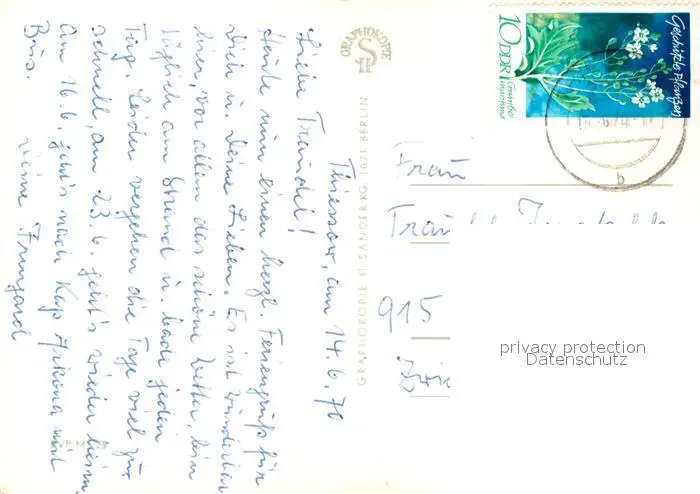 Thiessow, am 14.6.70
Liebe Traudel!
Heute nun einen herzl. Feriengruß für
Dich u. Deine Lieben. Es ist wunderbar
hier, vor allem das schöne Wetter, bin
täglich am Strand u. bade jeden
Tag. Leider vergehen die Tage viel zu
schnell, am 23.6. geht's wieder heim.
Am 16.6. geht's nach Kap Arkona mit
Bus.
Deine Irmgard
GRAPHOKOPIE
GRAPHOKOPIE H. SANDERBERG, 1071 BERLIN
10 DDR
Geschützte Pflanzen
Crambe
maritima
Frau
915
privacy protection
Datenschutz